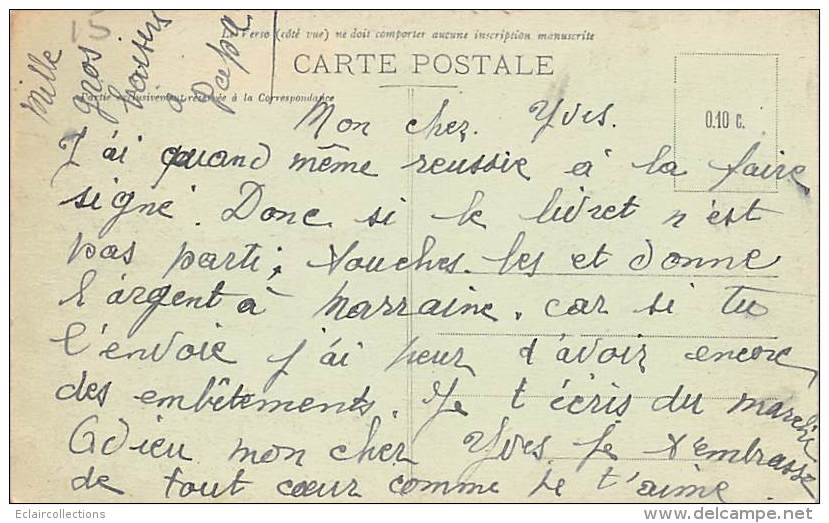 15
Le Verso (côté vue) ne doit comporter aucune inscription manuscrite
CARTE POSTALE
Partie exclusivement réservée à la Correspondance
0.10 c.
Mille
gros
baisers
Papa
Mon cher Yves.
J'ai quand même reussie à la faire
signé. Donc si le livret n'est
pas parti, touches les et donne
l'argent à Marraine. car si tu
l'envoie j'ai peur d'avoir encore
des embêtements. Je t'écris du marché
Adieu mon cher Yves je t'embrasse
de tout cœur comme je t'aime.
Eclaircollections
www.delcampe.net